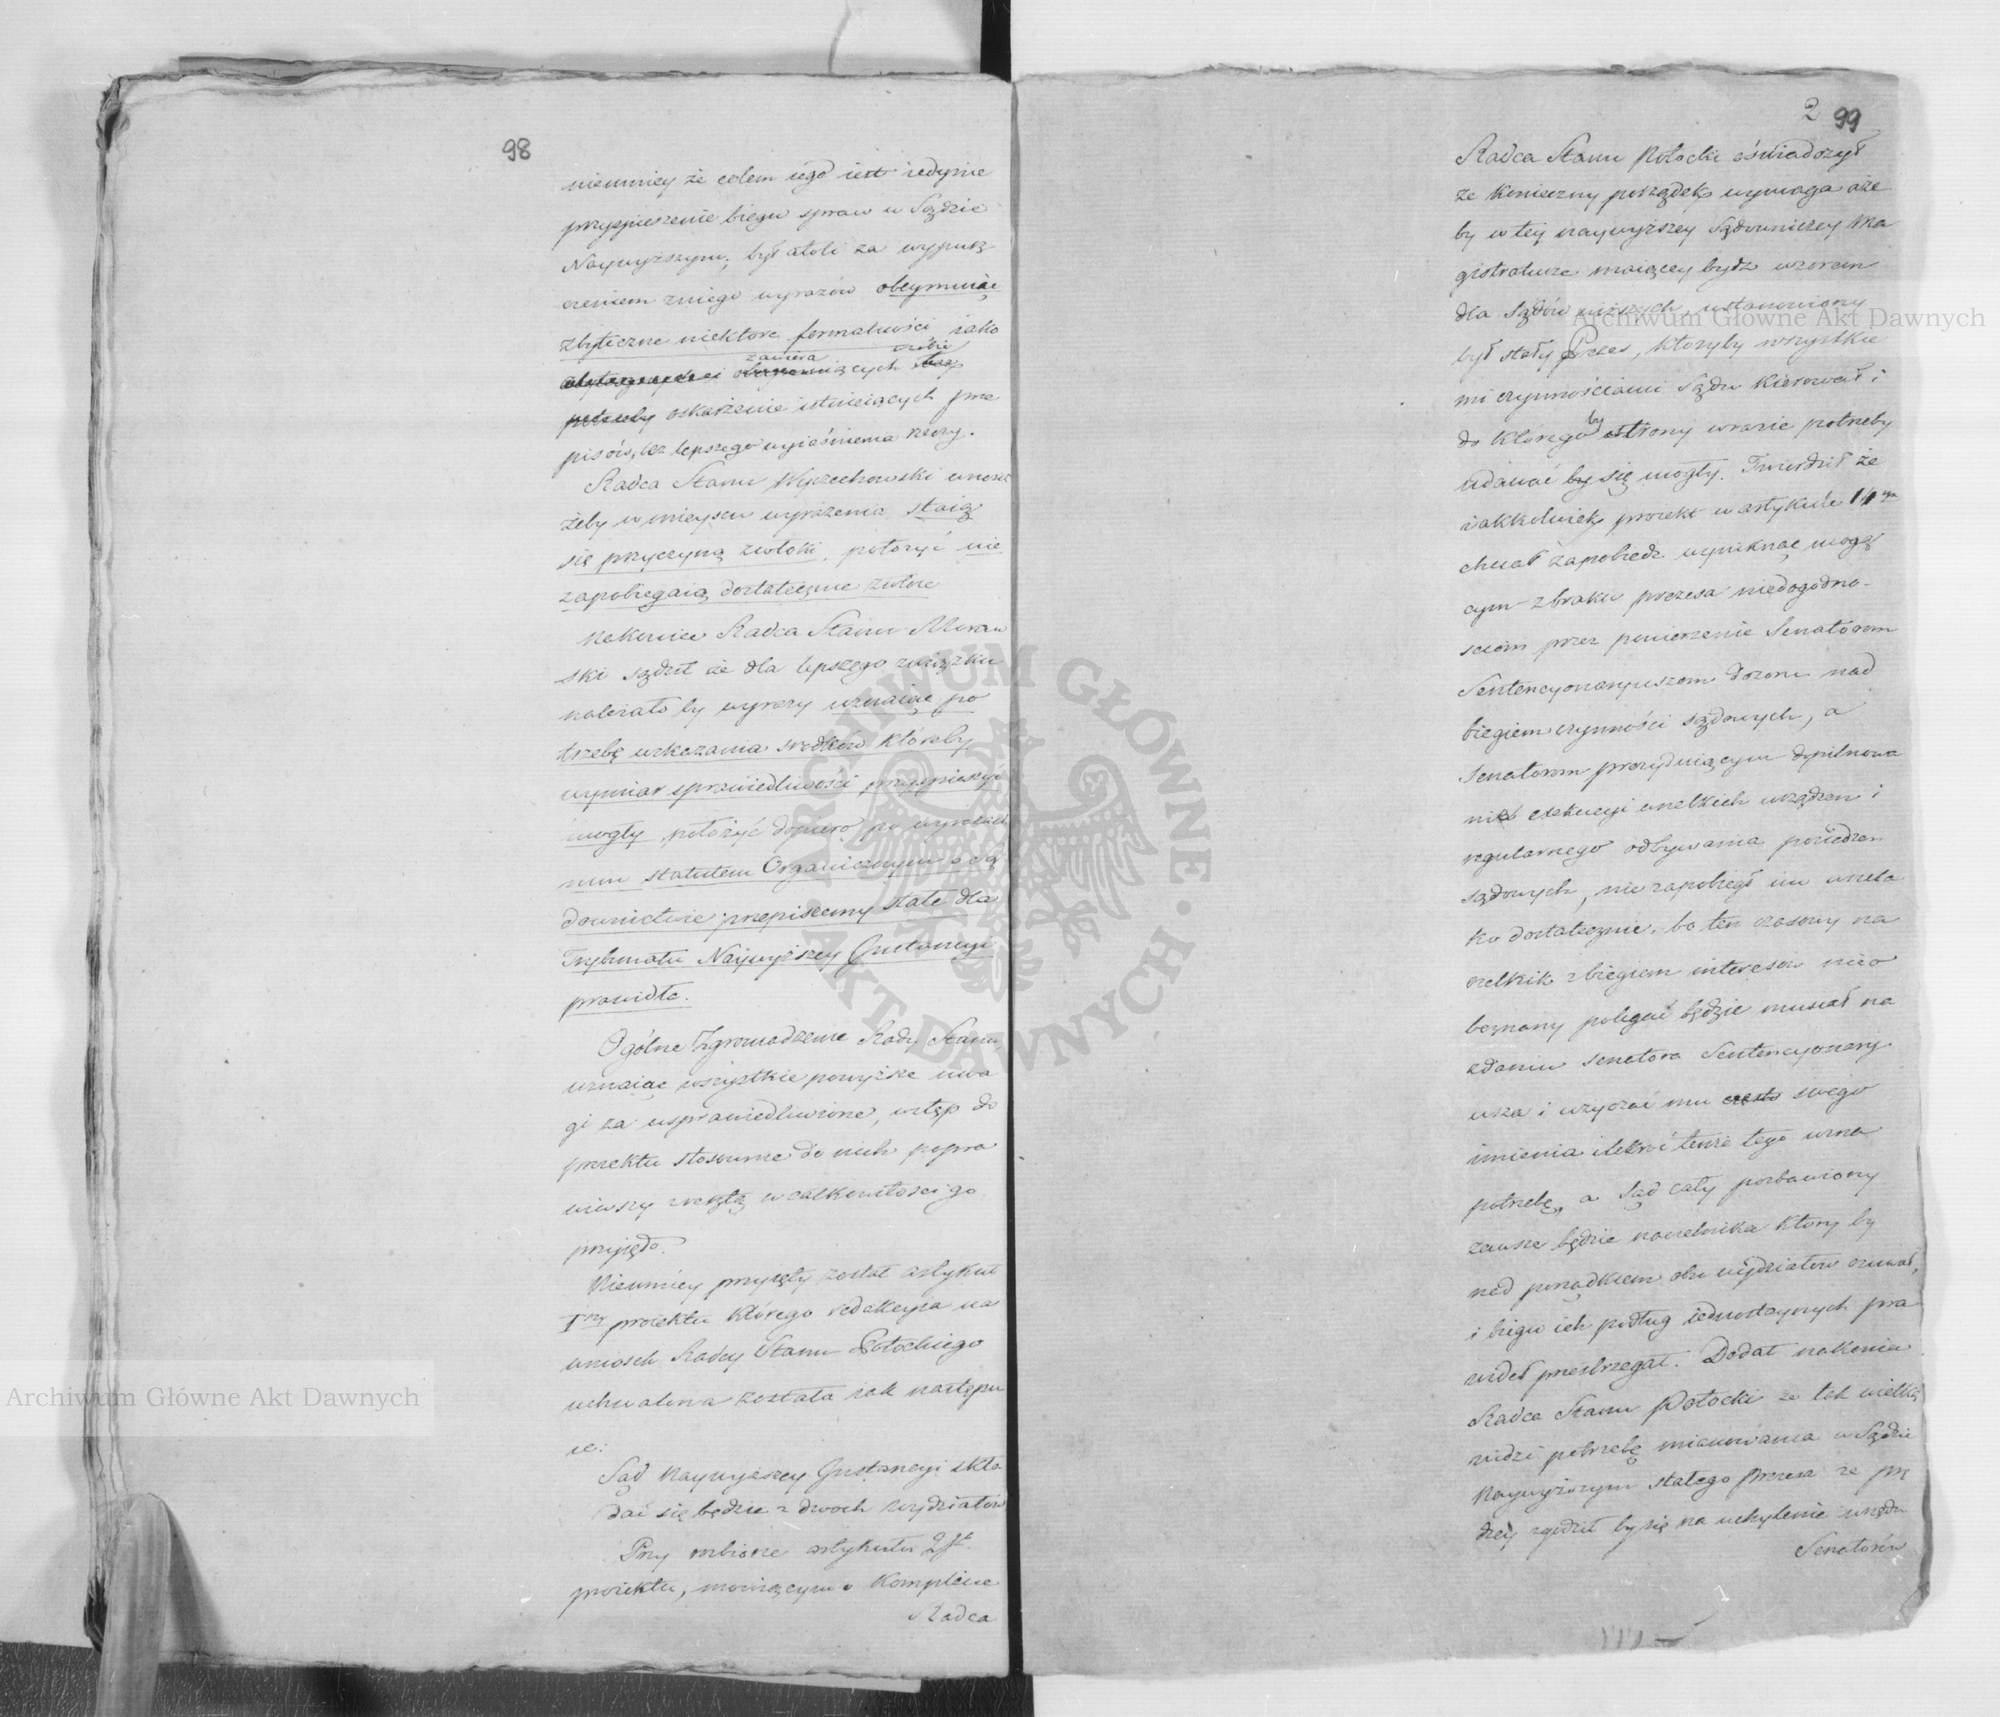 98
niemniey że celem iego iest iedynie
przyspieszenie biegu spraw w Sądzie
Naywyższym, był atoli za wypusz
czeniem z niego wyrazów obeymuiąc
zbyteczne niektore formalności iako
zawiera
oskarżenie istnieiących prze
pisów, bez lepszego wyiaśnienia rzeczy.
Radca Stanu Wyczechowski wnosił
żeby w mieyscu wyrażenia staią
się przyczyną zwłoki, położyć nie
zapobiegaią dostatecznie zwłoce
Nakoniec Radca Stanu Moraw
ski sądził że dla lepszego związku
należało by wyrazy uznaiąc po
trzebę wskazania srodków któreby
wymiar sprawiedliwości przyspieszyć
mogły, położyć dopiero po wyrazach
nim statutem Organicznym o są
downictwie przepisemy stałe dla
Trybunału Naywyższey Instancyi
prawidła.
Ogólne Zgromadzenie Rady Stanu,
uznaiąc wszystkie powyższe uwa
gi za usprawiedliwione, wstęp do
proiektu stosownie do nich popra
wiwszy zresztą w całkowitosci go
przyięło.
Niemniey przyięty został artykuł
Iszy proiektu którego redakcya na
wniosek Radcy Stanu Potockiego
uchwalona została iak następu
ie:
Sąd Naywyższey Instancyi skła
dać się będzie z dwoch wydziałów
Przy rozbiorze artykułu 2go
proiektu, mowiącym o Komplecie
Radca
2 99
Radca Stanu Potocki oświadczył
że konieczny porządek wymaga aże
by w tey naywyższey Sądowniczey Ma
gistraturze maiącey bydz wzorem
dla Sądów niższych, ustanowiony
był stały Prezes, któryby wszystkie
mi czynnościami Sądu kierował i
do którego by strony w razie potrzeby
udawać się mogły. Twierdził że
iakkolwiek proiekt w artykule
chciał zapobiedz wyniknąć mogą
cym z braku prezesa niedogodno-
sciom przez powierzenie Senatorom
Sentencyonaryuszom dozoru nad
biegiem czynności sądowych, a
Senatorom prezyduiącym dopilnowa
nie exekucyi wszelkich urządzeń i
regularnego odbywania posiedzeń
sądowych, nie zapobiegł im wszela
ko dostatecznie, bo ten czasowy na
czelnik z biegiem interesów nieo
beznany polegać będzie musiał na
zdaniu Senatora Sentencyonary
usza i użyczać mu swego
imienia ilekroć tenże tego uzna
potrzebę, a Sąd cały pozbawiony
zawsze będzie naczelnika który by
nad porządkiem obu wydziałów czuwał,
i biegu ich podług iednostaynych pra
wideł przestrzegał. Dodał nakoniec
Radca Stanu Potocki że tak wielką
widzi potrzebę mianowania w Sądzie
Naywyższym stałego prezesa że prę
dzey zgodził by się na uchylenie urzędu
Senatorów
Archiwum Główne Akt Dawnych
Archiwum Główne Akt Dawnych
ARCHIWUM GŁÓWNE · AKT DAWNYCH ·